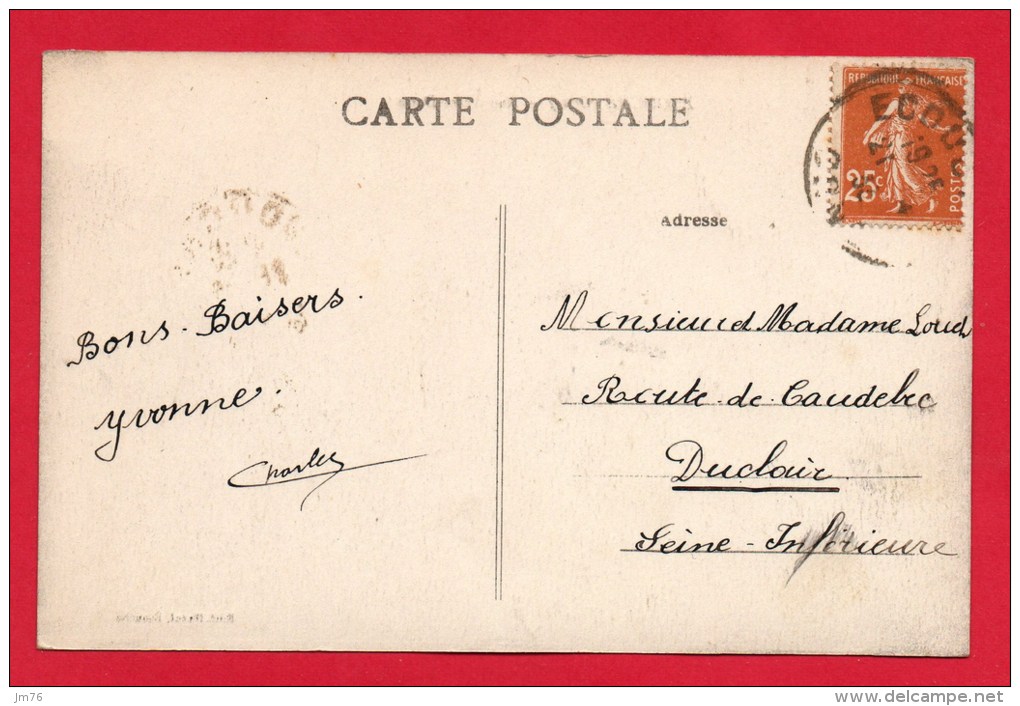 CARTE POSTALE
REPUBLIQUE FRANÇAISE
25c
POSTES
ECOU
Adresse
Bons. Baisers.
Yvonne.
Charles
Monsieur et Madame
Route. de. Caudebec
Duclair
Seine-Inférieure
jm76
www.delcampe.net